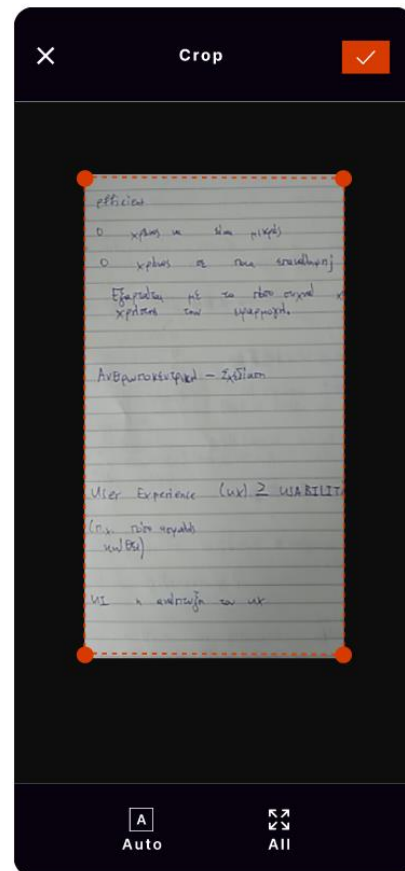 Crop
efficient
Ο χρόνος να είναι μικρός
Ο χρόνος σε
Εξαρτάται με το πόσο συχνά
χρήστης την εφαρμογή.
Ανθρωποκεντρική - Σχεδίαση
User Experience (UX) ≥ USABILIT
(π.χ. πόσο
UI η ανάπτυξη του UX
A
Auto
All